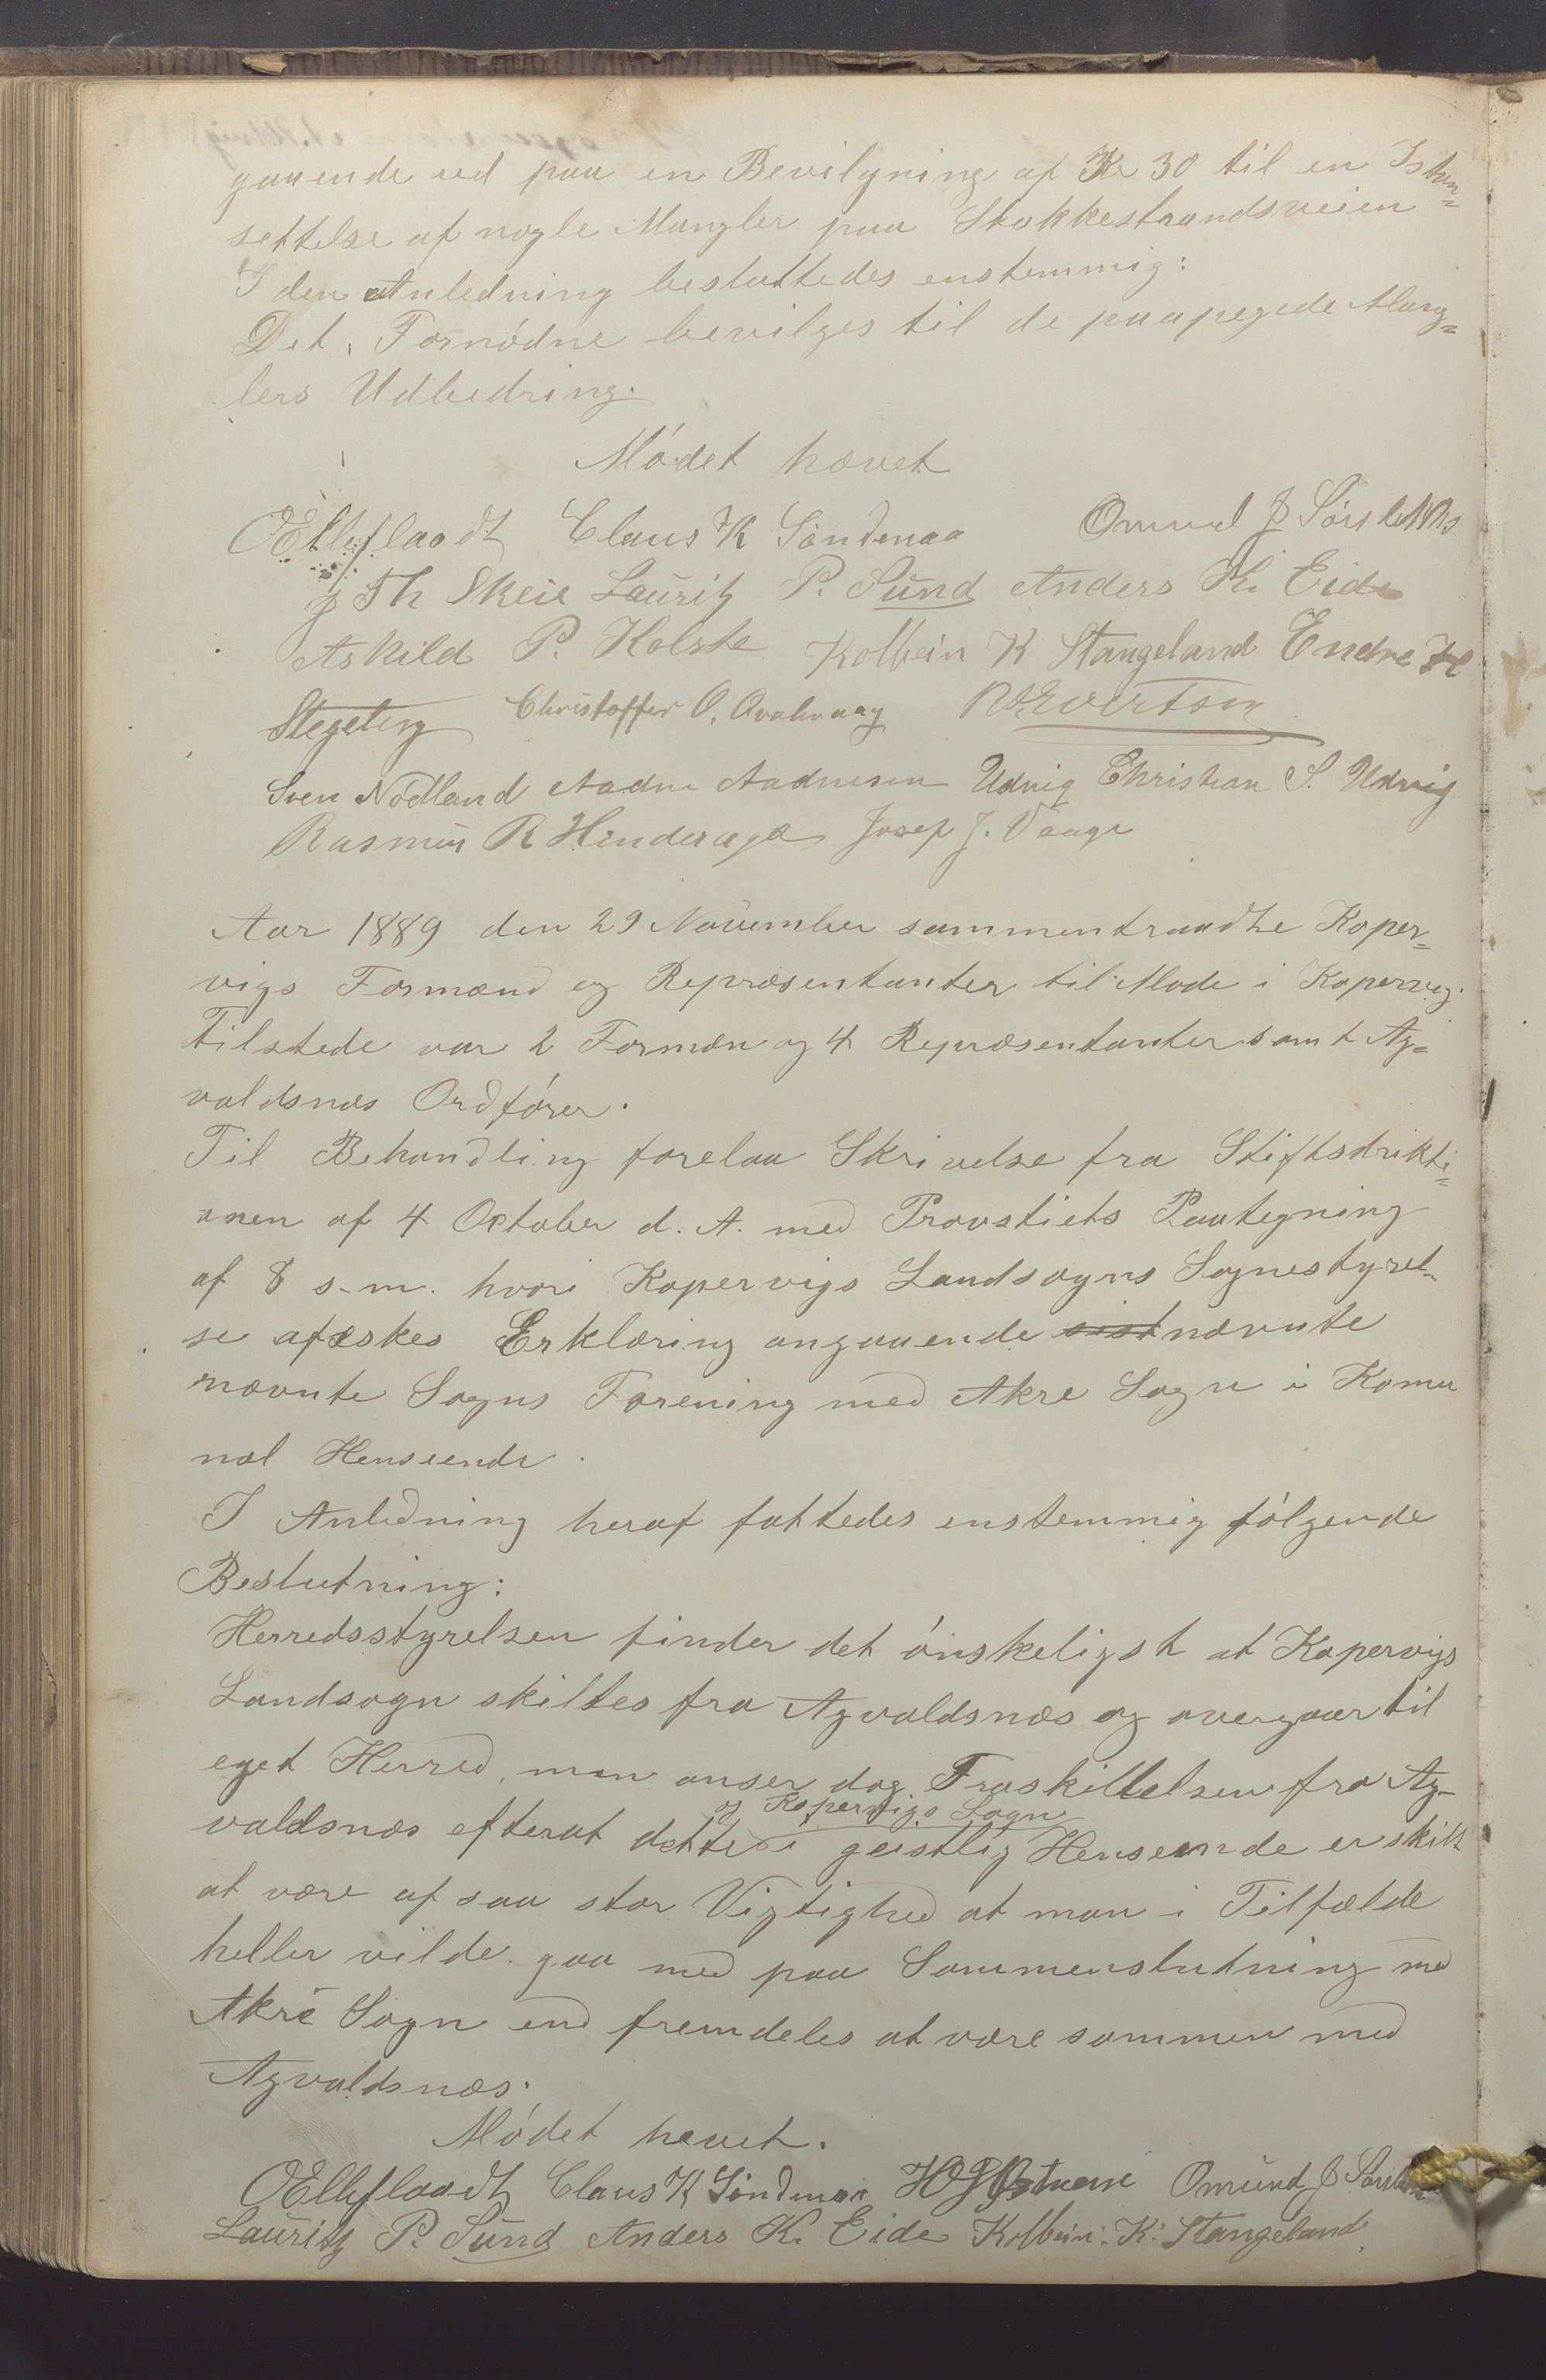 gaaende ud paa en Bevilgning af Kr 30 til en Istan-
settelse af nogle Mangler paa Stokkestrandsveien
I den Anledning besluttedes enstemmig:
Det Fornødne bevilges til de paapegede Mang-
lers Udbedring.
Mødet hævet
OElleflaadt Claus K Sondenaa Omund J
J Th Skeie Lauritz P. Sund Anders K. Eide
Askild P. Holste Kolbein K Stangeland Endre H
Stegeberg Christoffer O. Qvalevaag Evertsen
Sven Nodland Aadne Aadnesen Udvig Christian S. Udvig
Rasmus R Hinderager Josef J. Vaage
Aar 1889 den 29 November sammentraadte Koper-
vigs Formænd og Repræsentanter til Møde i Kopervig.
Tilstede var 2 Formæn og 4 Repræsentanter samt Ag-
valdsnæs Ordfører.
Til Behandling forelaa Skrivelse fra Stiftsdrikti-
onen af 4 October d. A. med Provstiets Paategning
af 8 s. m. hvori Kopervigs Landsogns Sognestyrel-
se afæskes Erklæring angaaende sist nævnte
nævnte Sogns Forening med Akre Sogn i Komu
nal Henseende.
I Anledning heraf fattedes enstemmig følgende
Beslutning:
Herredsstyrelsen finder det ønskeligst at Kopervigs
Landsogn skiltes fra Agvaldsnæs og overgaar til
eget Herred, men anser dog Fraskillelsen fra Ag-
og Kopervigs Sogn
valdsnæs efterat dette i geistlig Henseende er skilt
at være af saa stor Vigtighed at man i Tilfælde
heller vilde gaa med paa Sammenslutning med
Akre Sogn end fremdeles at være sammen med
Agvaldsnæs.
Mødet hævet.
OElleflaadt Claus K Sondenaa Omund J
Lauritz P. Sund Anders K. Eide Kolbein K. Stangeland